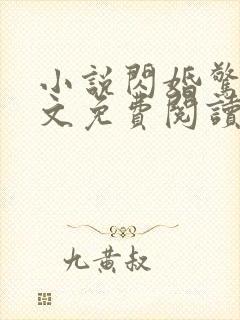 小說閃婚驚
文免費閱讀
九黃叔